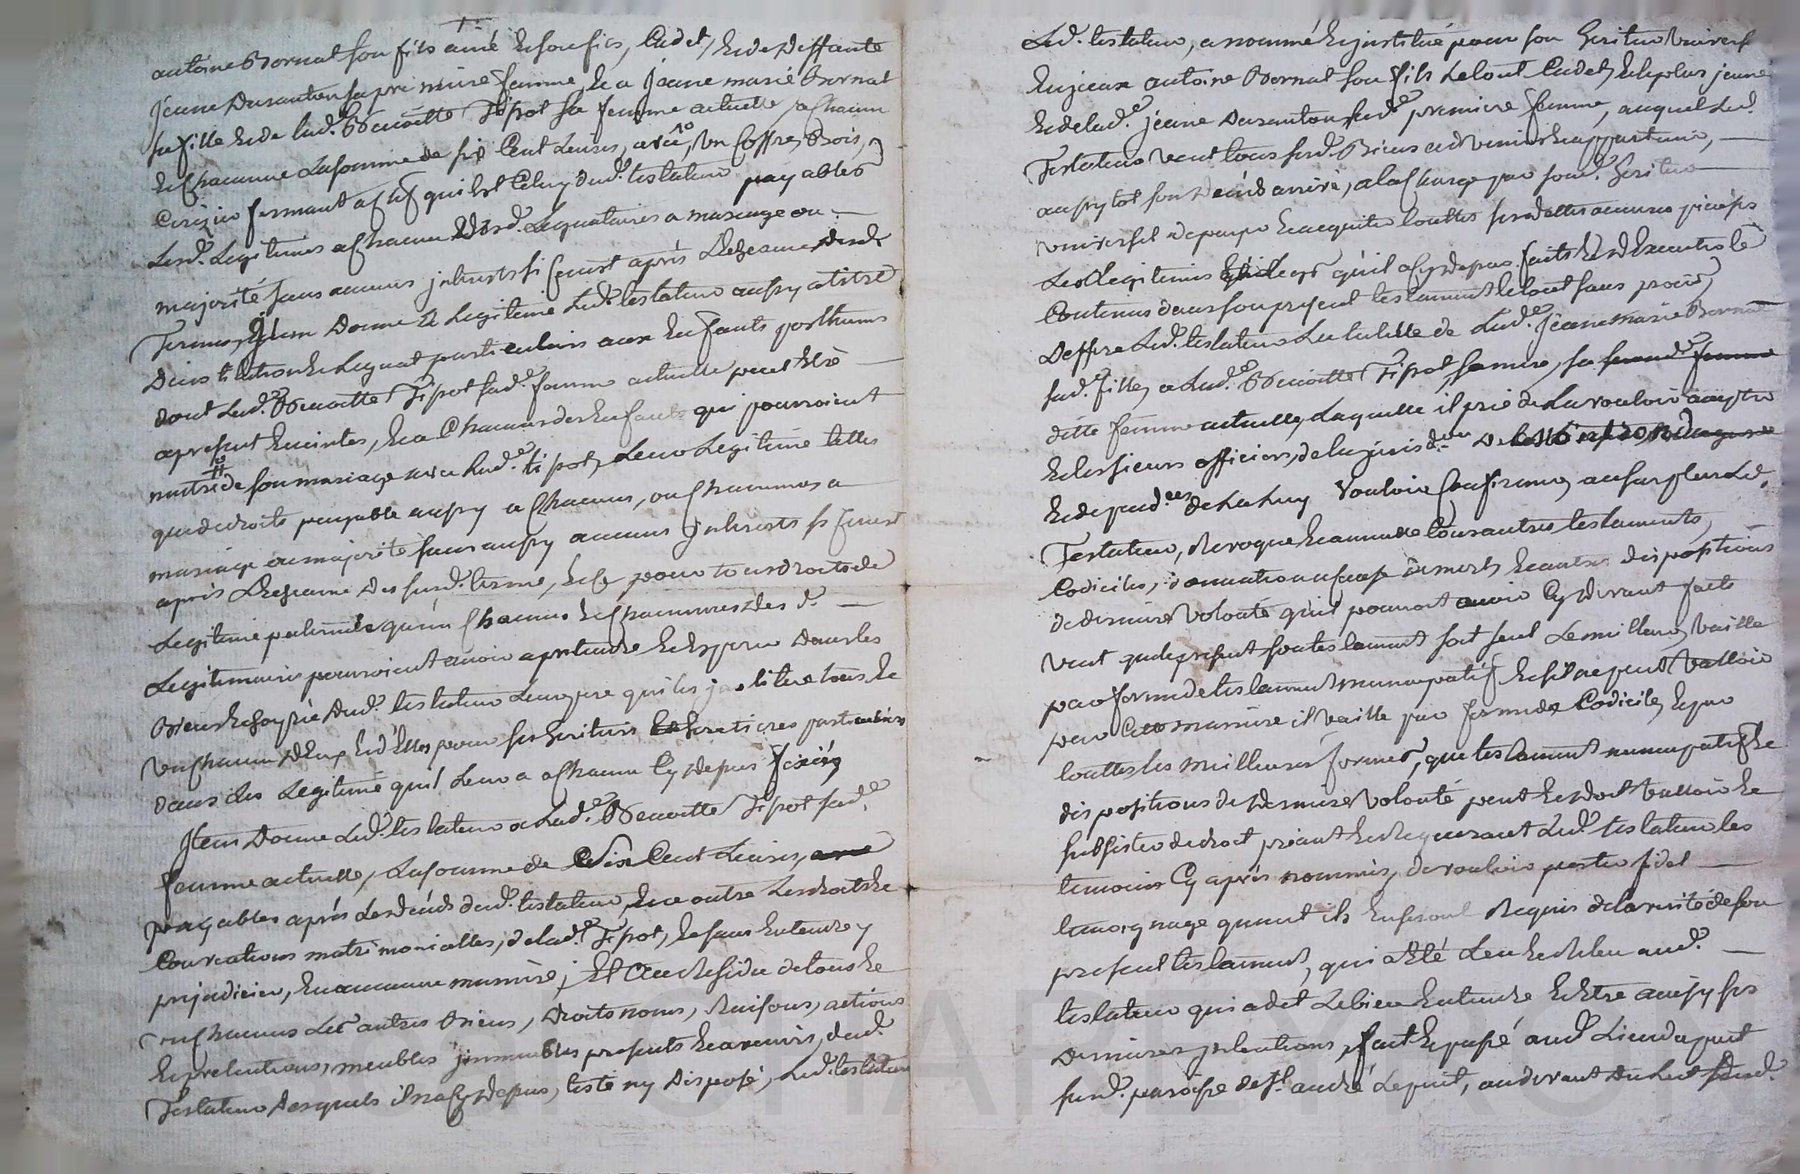 antoine Bornat son fils ainé & son fils, Cadet, & de deffante
Jeane Dusauton sa premiere femme, & a Jeane marie Bornat
sa fille & de lad.e Benoitte Tipot sa femme actuelle, a Chacun
& Chacune La somme de six Cent Livres, avec un Coffre Bois,
Cerizier fermant a Clef qui est Celuy dud. testateur payables
Lesd. Legitimes a Chacun desd. Legataires a mariage ou
majorité sans aucuns jnterests si Ce nest après L'Echeance desd.
Termes, Jtem Donne & Legitime Led. testateur aussy a titre
D'institution & Legat particuliers aux Enfants posthumes
dont Lad.e Benoitte Tipot sad.e femme actuelle peut Etre
apresent Enceinte, & a Chacun des Enfants qui pourroient
naitre de son mariage avec Lad.e tipot, Leur Legitime telle
que de droit, payable aussy a Chacun, ou Chacunnes a
mariage ou majorité sans aussy aucuns jnterests si Ce nest
après L'Echeance des susd. terme, & Ce pour tous droits de
Legitime paternelle qu'un Chacuns & Chacunnes des d.
Legitimaires pourroient avoir a pretendre & Esperer Dans les
Biens & hoyrie Dud. testateur Leur pere qui les jnstitue tous &
un Chacun d'Eux & d'Elles pour ses heritiers & heritieres particuliers
dans Les Legitime quil Leur a a Chacun Cy depus fixés
Jtem Donne Led. testateur a Lad.e Benoitte Tipot sad.e
femme actuelle, La somme de Six Cent Livres,
payables après Le deceds dud. testateur, & ce outre Les droits &
Conventions matrimonialles, de lad.e Tipot, & sans Entendre y
prejudicier, En aucune manniere; Et Au Residu de tous &
un Chacuns Les autres Biens, Droits noms, Raisons, actions
& pretentions, meubles jmmeubles presents & avenirs, dud.
Testateur Desquels il na Cy depus, testé ny Disposé, Led. testateur
Led. testateur, a nommé & jnstitué pour son heritier Universel
En jceux antoine Bornat son fils Le tout Cadet, & le plus jeune
& de lad.e jeane Dusauton sad.e premiere femme, auquel Led.
Testateur veut tous sesd. Biens advenir & appartenir,
aussytot son Deceds arrivé, a la Charge par sond. heritier
universel de payer & acquiter touttes ses dettes
Les Legitimes & Legs qu'il a Cy depus faits & d'Executer le
Contenus dans son present testament le tout sans procès,
Deffere Led. testateur La tutelle de Lad.e Jeane Marie Bornat
sad.e fille, a Lad.e Benoitte Tipot, sa mere, sa
ditte femme actuelle, Laquelle il prie de La vouloir accepter
& les sieurs officiers, de la jurisd.on
& de pard.es de La luy Vouloir Confirmer, au surplus Led.
Testateur, Revoque & annulle tous autres testaments,
Codiciles, donnations a Cause de mort, & autres dispositions
de derniere volonté qu'il pourroit avoir Cy devant faits
veut que le present son testament soit seul Le meilleur, vaille
par forme de testament nuncupatif, & s'il ne peut valloir
par Cette maniere il vaille par forme de Codicile, & par
touttes les meilleures formes, que testament nuncupatif &
dispositions de derniere volonté peut & doit valloir &
subsister de droit priant & Requerant Led. testateur les
temoins Cy après nommés, de vouloir porter fidel
temoignage quant ils En seront Requis de la verité de son
present testament, qui a Eté Leu & Releu aud.
testateur qui a dit Le bien Entendre & Etre ainsy ses
Dernieres jntentions, fait & passé aud. Lieu daguet
susd. paroisse de St andré Le puit, au devant Du Lict dud.